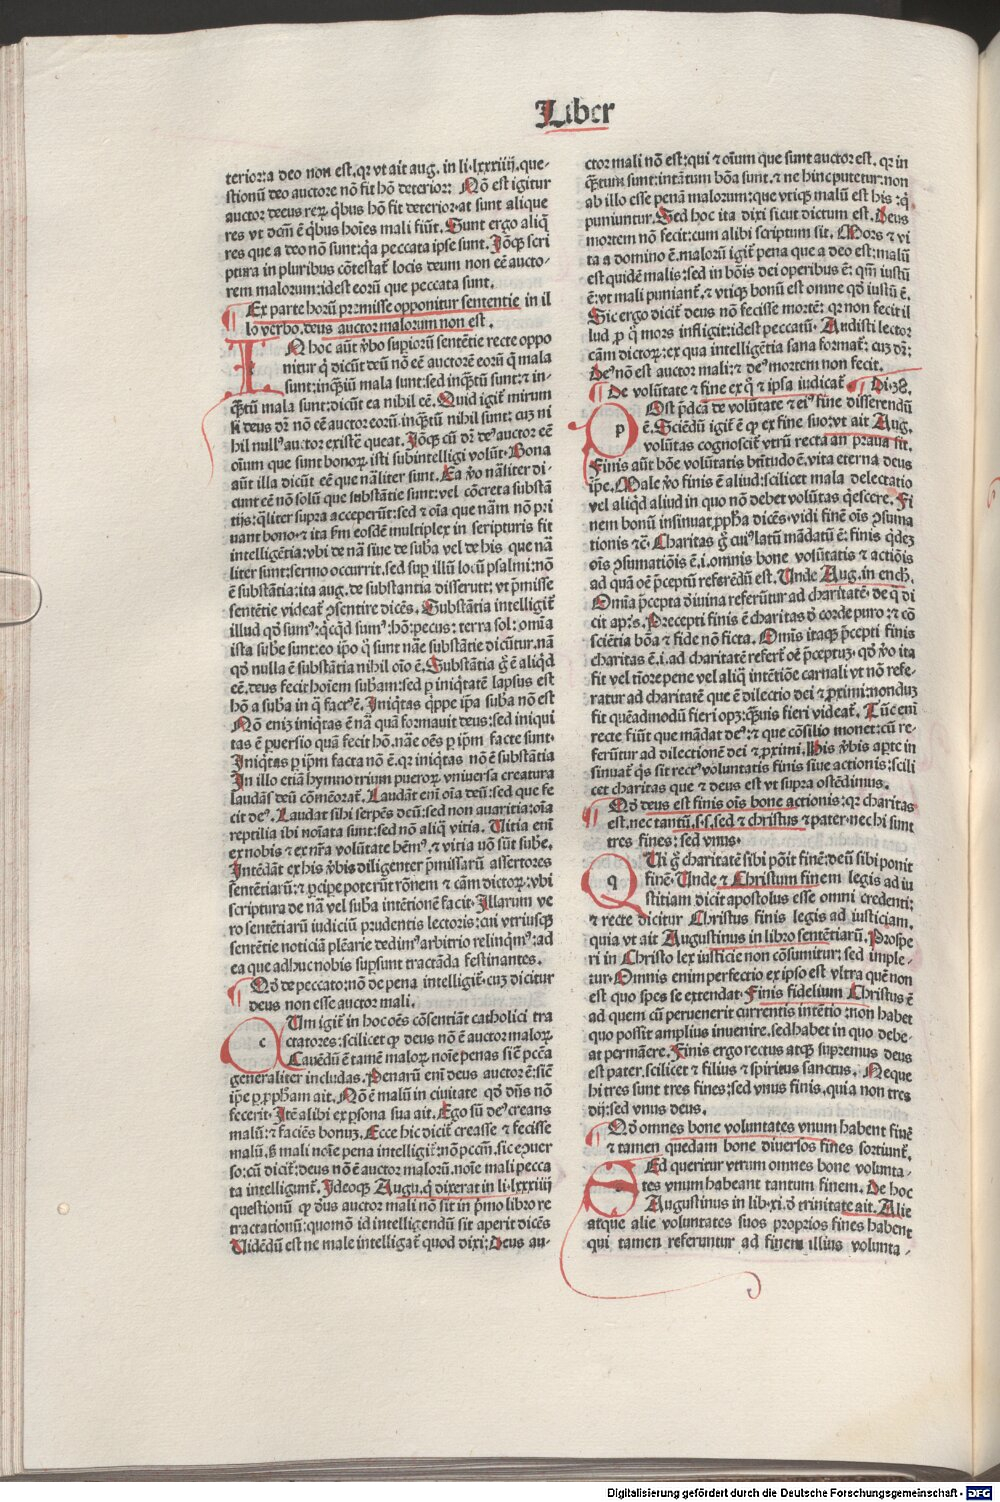 Liber
terior: a deo non est. qr vt ait aug. in li. lxxxiiij. que-
stionū deo auctore nō fit hō deterior: Nō est igitur
auctor deus reꝝ q̄bus hō fit deterior. at sunt alique
res vt dcm̄ ē q̄bus hoīes mali fiūt. Sunt ergo aliq̄
res que a deo nō sunt: q̄a peccata ipse sunt. Jōqꝫ scri
ptura in pluribus cōtestat᷑ locis deum non eē aucto-
rem malorum: idest eorū que peccata sunt.
Ex parte horū premisse opponitur sententie in il
lo verbo, deus auctor malorum non est.
IN hoc aūt v̄bo sup̄iorū sentētie recte oppo
nitur q̄ dicūt deū nō eē auctorē eorū q̄ mala
sunt: inqꝫtū mala sunt: sed inqꝫtū sunt: ⁊ in-
qꝫtū mala sunt: dicūt ea nihil eē. Quid igit᷑ mirum
si deus dr̄ nō eē auctor eorū. inqꝫtū nihil sunt: cuꝫ ni
hil null⁹ auctor existē queat. Jōqꝫ cū dr̄ de⁹ auctor eē
oīum que sunt bonoꝝ. isti subintelligi volūt. Bona
aūt illa dicūt eē que nāliter sunt. Ea v̄o nāliter di-
cunt eē nō solū que substātie sunt: vel cōcreta substā
tijs: q̄liter supra acceperūt: sed ⁊ oīa que nām nō pri
uant bono. ⁊ ita ẜm eosdē multiplex in scripturis fit
intelligētia: vbi de nā siue de subā vel de his que nā
liter sunt: sermo occurrit. sed suꝑ illū locū psalmi: nō
ē substātia: ita aug. de substantia disserūt: vt p̄misse
sentētie videat᷑ ꝯsentire dicēs. Substātia intelligit᷑
illud qd̄ sum⁹: q̄cq̄d sum⁹: hō: pecus: terra sol: omīa
ista sube sunt: eo ip̄o q̄ sunt nāe substātie dicūtur. nā
qd̄ nulla ē substātia nihil oīo ē. Substātia ḡ ē aliq̄d
eē. deus fecit hoīem subam: sed ꝑ iniq̄tatē lapsus est
hō a suba in q̄ fact⁹ ē. Jniq̄tas q̄ppe ip̄a suba nō est
Nō eniꝫ iniq̄tas ē nā quā formauit deus: sed iniqui
tas ē ꝑuersio quā fecit hō. nāe oēs ꝑ ip̄m facte sunt.
Jniq̄tas ꝑ ip̄m facta nō ē. qr iniq̄tas nō ē substātia
In illo etiā hymno trium pueroꝝ vniuersa creatura
laudās deū cōmēorat᷑. Laudāt enī oīa deū: sed que fe
cit de⁹. Laudat sibi serpēs deū: sed non auaritia: oīa
reptilia ibi noīata sunt: sed nō aliq̄ vitia. Uitia enī
ex nobis ⁊ ex nr̄a volūtate hēm⁹. ⁊ vitia nō sūt sube.
Intēdāt ex his v̄bis diligenter p̄missarū assertores
sentētiarū: ⁊ ꝑcipe poterūt rōnem ⁊ cām dictoꝝ: vbi
scriptura de nā vel suba intētionē facit. Illarum ve
ro sentētiarū iudiciū prudentis lectoris: cui vtriusqꝫ
sentētie noticiā plēarie dedim⁹ arbitrio relinq̄m⁹: ad
ea que adhuc nobis suꝑsunt tractāda festinantes.
Qd̄ de peccato: nō de pena intelligit᷑. cuꝫ dicitur
deus non esse auctor mali.
CUm igit᷑ in hoc oēs cōsentiāt catholici tra
ctatores: scilicet ꝙ deus nō ē auctor maloꝝ
Cauēdū ē tamē maloꝝ noīe penas siē pccā
generaliter includas. Penarū enī deus auctor ē: siē
ip̄e ꝑ ꝓpham ait. Nō ē malū in ciuitate qd̄ dn̄s nō
fecerit. Itē alibi ex ꝑsona sua ait. Ego sū de⁹ creans
malū: ⁊ faciēs bonuꝫ. Ecce hic dicit᷑ creasse ⁊ fecisse
malū. s̄ mali noīe pena intelligit᷑: nō pccm̄. sic eꝯuer
so: cū dicit᷑: deus nō ē auctor malorū. noīe mali pecca
ta intelligunt᷑. Jdeoqꝫ Augu. q̄ dixerat in li. lxxxiiij
questionū ꝙ d̄us auctor mali nō sit in p̄mo libro re
tractationū: quomō id intelligendū sit aperit dicēs
Uidēdū est ne male intelligat᷑ quod dixi: Deus au-
ctor mali nō est: qui ⁊ oīum que sunt auctor est. qr in
qꝫtum sunt: intātum bōa sunt. ⁊ ne hinc putetur: non
ab illo esse penā malorum: que vtiqꝫ malū est his: q̄
puniuntur. Sed hoc ita dixi sicut dictum est. Deus
mortem nō fecit: cum alibi scriptum sit. Mors ⁊ vi
ta a domino ē. malorū igit᷑ pena que a deo est: malū
est quidē malis: sed in bōis dei operibus ē: qm̄ iustū
ē: vt mali puniant᷑. ⁊ vtiqꝫ bonū est omne qd̄ iustū ē.
Sic ergo dicit᷑ deus nō fecisse mortē: qr non fecit il
lud ꝓ q̄ mors infligit᷑: idest peccatū. Audisti lector
cām dictoꝝ: ex qua intelligētia sana format᷑: cuꝫ dr̄:
De⁹ nō est auctor mali: ⁊ de⁹ mortem non fecit.
De volūtate ⁊ fine ex q̄ ⁊ ipsa iudicat᷑. Di. 38.
POst p̄dcā de volūtate ⁊ ei⁹ fine disserendū
ē. Sciēdū igit᷑ ē ꝙ ex fine suo: vt ait Aug.
voluntas cognoscit᷑ vtrū recta an praua sit.
Finis aūt bōe volūtatis btītudo ē. vita eterna deus
ip̄e. Male v̄o finis ē aliud: scilicet mala delectatio
vel aliq̄d aliud in quo nō debet volūtas q̄escere. Fi
nem bonū insinuat ꝓpha dicēs. vidi finē oīs ꝯsuma
tionis ⁊c̄. Charitas ḡ cui⁹ latū mādatū ē: finis q̄deꝫ
oīs ꝯsumatiōis ē. i. omnis bone volūtatis ⁊ actiōis
ad quā oē p̄ceptū referēdū est. Unde Aug. in ench.
Omīa p̄cepta diuina referūtur ad charitatē. de q̄ di
cit ap̄ls. Precepti finis ē charitas d̄ corde puro: ⁊ cō
sciētia bōa ⁊ fide nō ficta. Omnis itaqꝫ p̄cepti finis
charitas ē. i. ad charitatē refert᷑ oē p̄ceptuꝫ. qd̄ v̄o ita
fit vel timore pene vel aliq̄ intētiōe carnali vt nō refe-
ratur ad charitatē que ē dilectio dei ⁊ ꝓximi: nonduꝫ
fit quēadmodū fieri opꝫ: qꝫuis fieri videat᷑. Tūc enī
recte fiūt que mādat de⁹: ⁊ que cōsilio monet: cū re-
ferūtur ad dilectionē dei ⁊ ꝓximi. His v̄bis aꝑte in
sinuat᷑ q̄s sit rect⁹ voluntatis finis siue actionis: scili
cet charitas que ⁊ deus est vt supra ostēdimus.
Qd̄ deus est finis oīs bone actionis: qr charitas
est. nec tantū. s. s. sed ⁊ christus ⁊ pater. nec hi sunt
tres fines: sed vnus.
QUi ḡ charitatē sibi pōit finē: deū sibi ponit
finē. Unde ⁊ Christum finem legis ad iu
stitiam dicit apostolus esse omni credenti:
⁊ recte dicitur Christus finis legis ad iusticiam.
quia vt ait Augustinus in libro sentētiarū. Prosꝑe
ri in Christo lex iusticie non cōsumitur: sed imple-
tur. Omnis enim perfectio ex ipso est vltra quē non
est quo spes se extendat. Finis fidelium Christus ē
ad quem cū peruenerit currentis intētio: non habet
quo possit amplius inuenire. sed habet in quo debe-
at permāere. Finis ergo rectus atqꝫ supremus deus
est pater. scilicet ⁊ filius ⁊ spiritus sanctus. Neque
hi tres sunt tres fines: sed vnus finis. quia non tres
dij: sed vnus deus.
Qd̄ omnes bone voluntates vnum habent finē
⁊ tamen quedam bone diuersos fines sortiunt᷑.
SEd queritur vtrum omnes bone volunta-
tes vnum habeant tantum finem. De hoc
Augustinus in lib. xi. d̄ trinitate ait. Alie
atque alie voluntates suos proprios fines habent
qui tamen referuntur ad finem illius volunta-
Digitalisierung gefördert durch die Deutsche Forschungsgemeinschaft - DFG